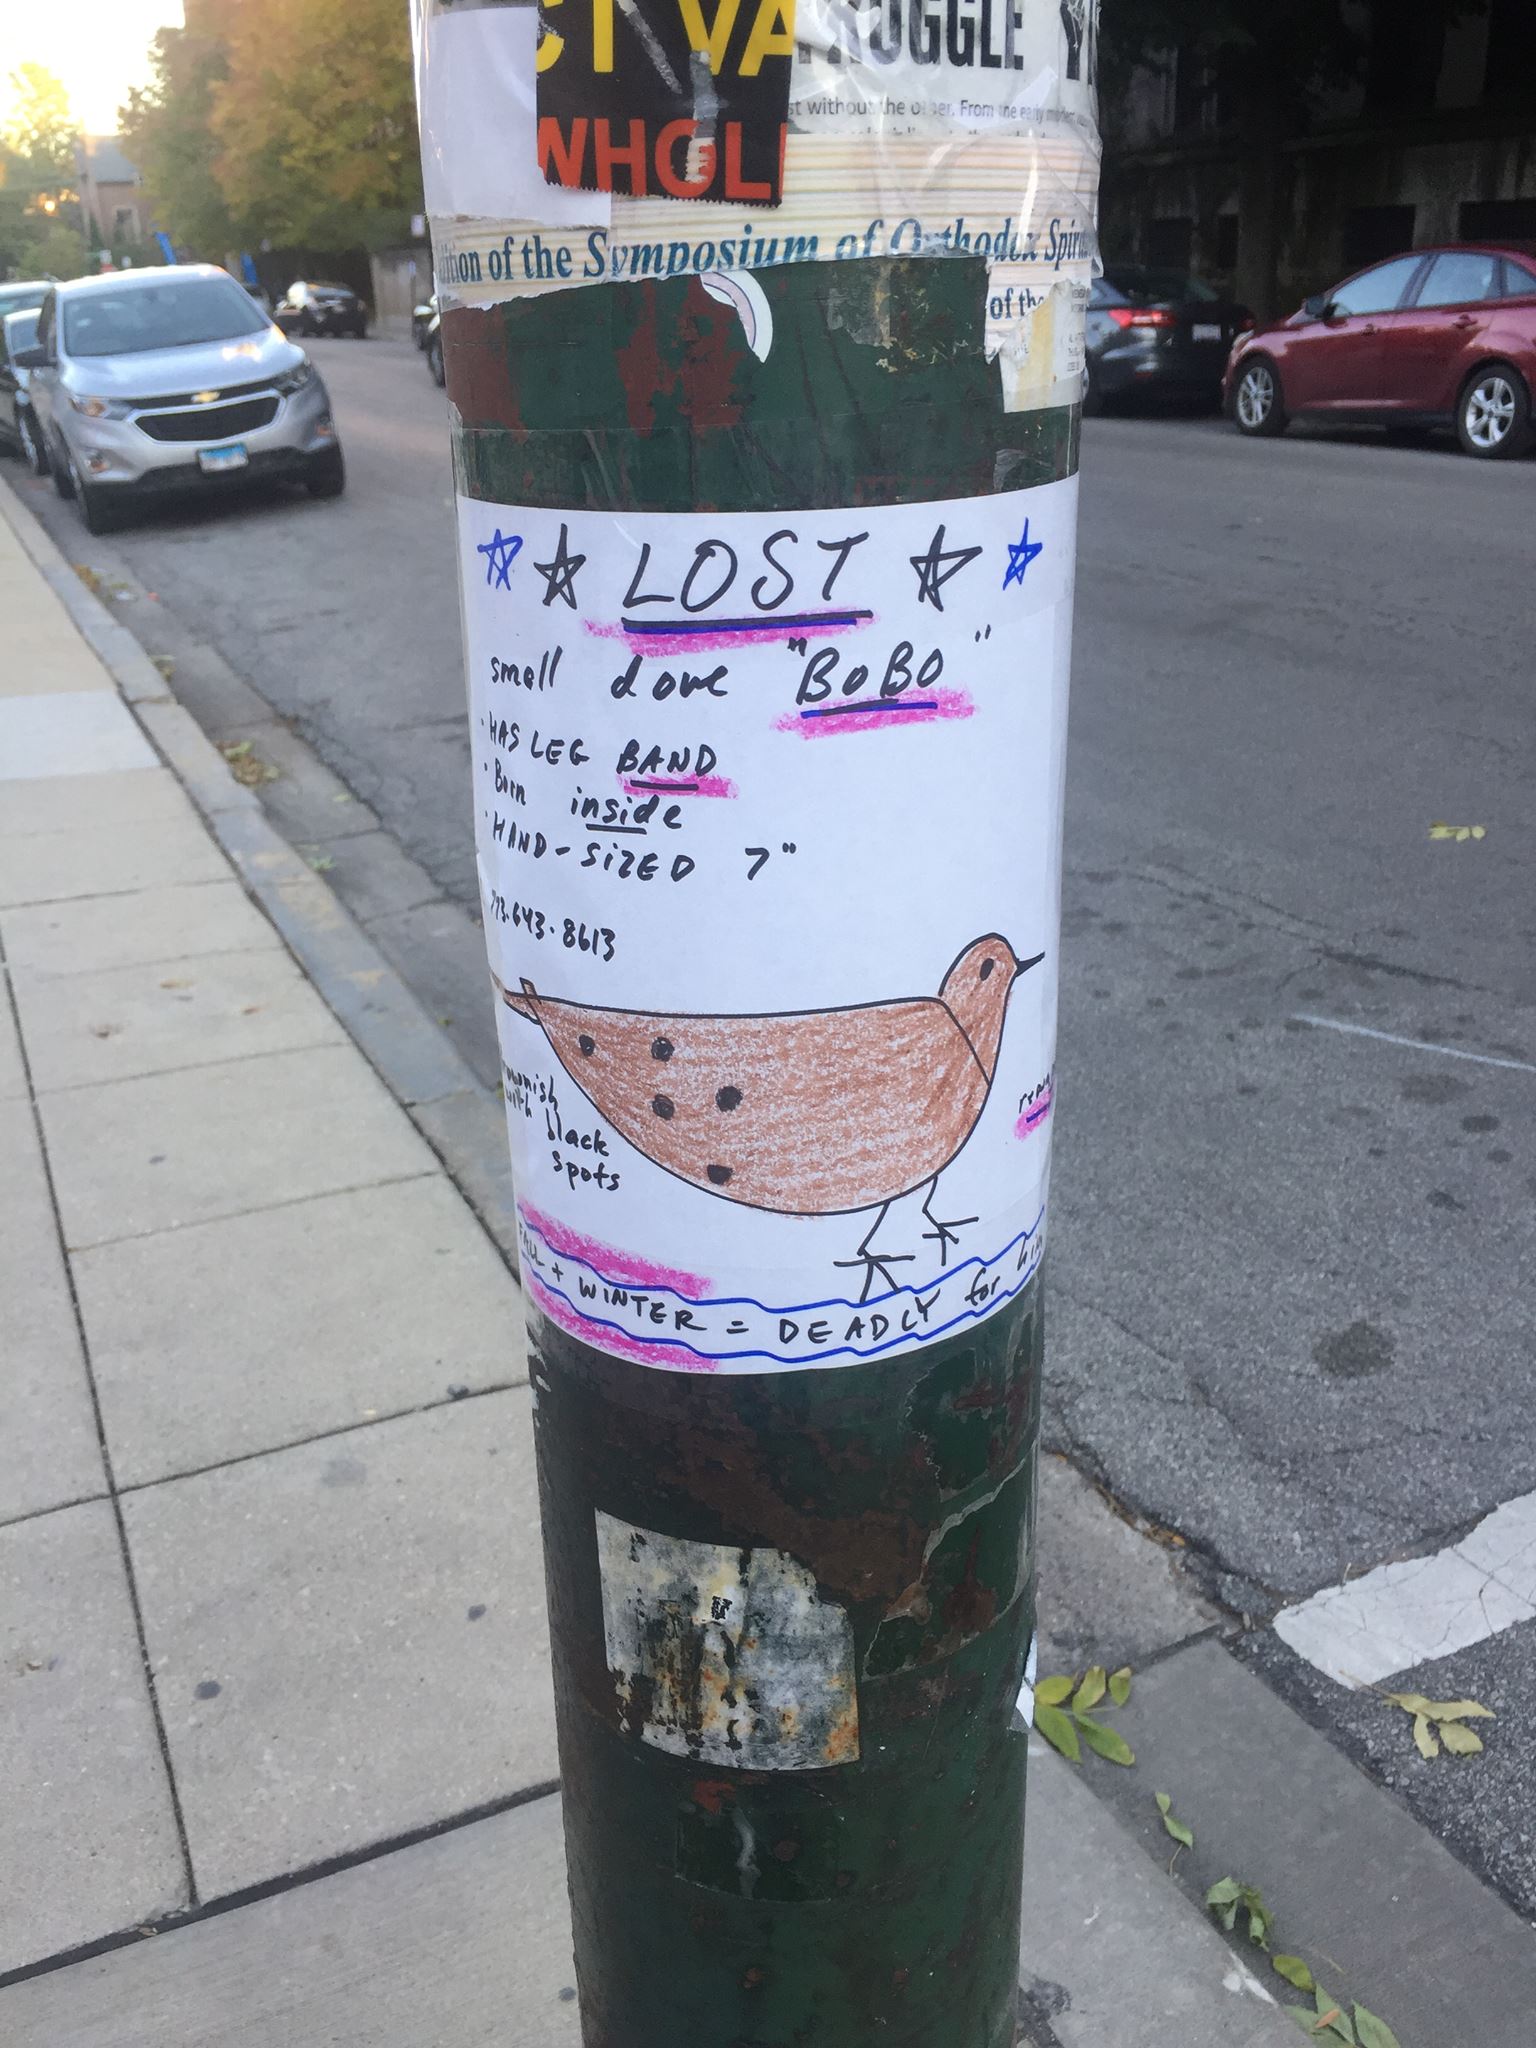 WHOL
st without the other. From the early
dition of the Symposium of Orthodox
of the
LOST
small dove "BOBO"
· HAS LEG BAND
· Born inside
· HAND-SIZED 7"
773.643.8613
with black
spots
FALL + WINTER = DEADLY for him